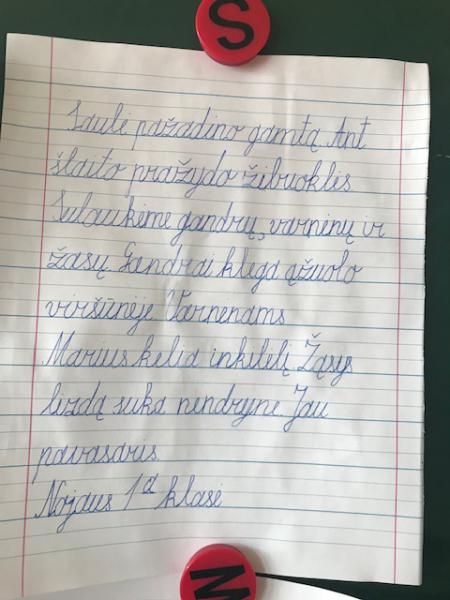 S
Saulė pažadino gamtą Ant
šlaito pražydo žibuoklės
Sulaukėme gandrų, varnėnų ir
žąsų. Gandrai klega ąžuolo
viršūnėje Varnėnams
Marius kelia inkilėlį Žąsys
lizdą suka nendryne Jau
pavasaris
Nojaus 1ᵈ klasė
M